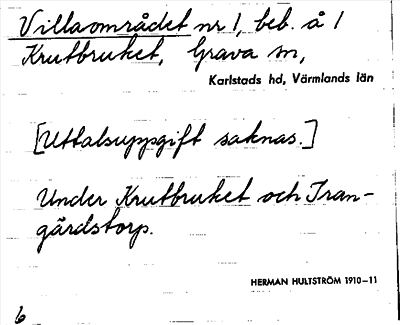 Villaområdet nr 1, beb. å 1
Krutbruket, Grava sn,
Karlstads hd, Värmlands län
[Uttalsuppgift saknas.]
Under Krutbruket och Tran-
gärdstorp.
HERMAN HULTSTRÖM 1910-11
6